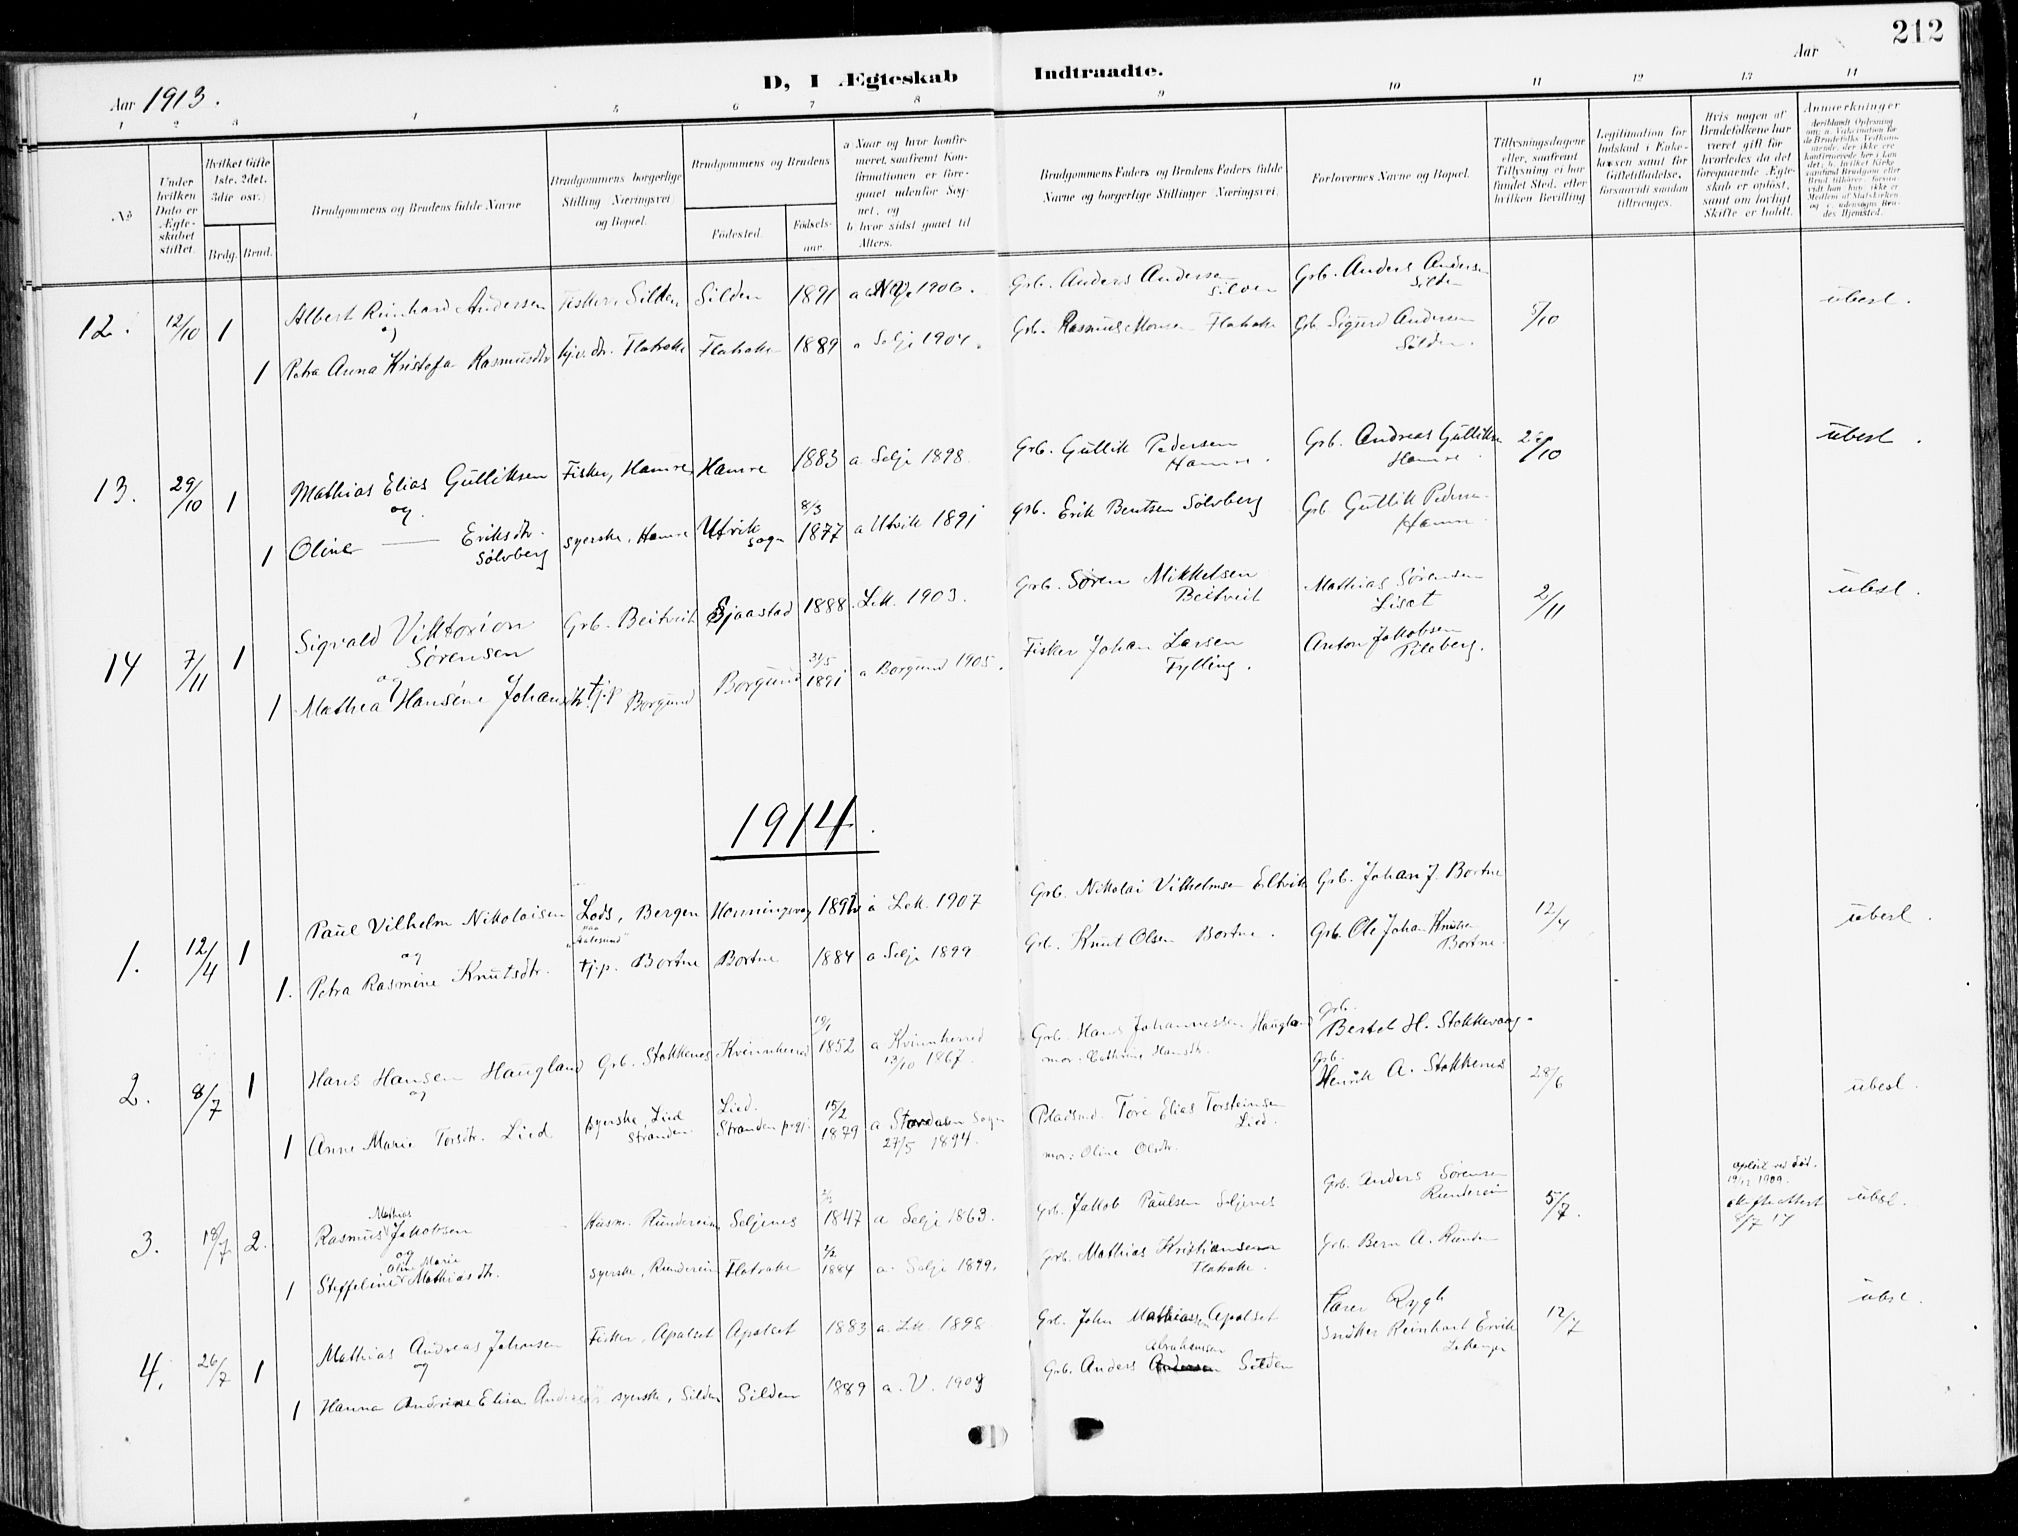 212
D, I Ægteskab Indtraadte.
Aar 1913.
Aar
1 2 3 4 5 6 7 8 9 10 11 12 13 14
No
Under hvilken Dato er Ægteskabet stiftet.
Hvilket Gifte 1ste, 2det, 3die osv.
Brdg. Brud.
Brudgommens og Brudens fulde Navne
Brudgommens borgerlige Stilling (Næringsvei) og Bopæl.
Brudgommens og Brudens
Fødested. Fødselsaar.
a Naar og hvor konfirmeret, saafremt Konfirmationen er foregaaet udenfor Sognet, og
b hvor sidst gaaet til Alters.
Brudgommens Faders og Brudens Faders fulde Navne og borgerlige Stillinger (Næringsvei)
Forlovernes Navne og Bopæl.
Tillysningsdagene eller, saafremt Tillysning ei har fundet Sted, efter hvilken Bevilling
Legitimation for Indskud i Enkekassen samt for Giftetilladelse, forsaavidt saadan tiltrænges.
Hvis nogen af Brudefolkene har været gift før hvorledes da det foregaaende Ægteskab er opløst, samt om lovligt Skifte er holdt.
Anmærkninger
12. 12/10 1 Albert Reinhard Andersen Fisker, Silden Silden 1891 1906. Grb. Anders Andersen Silden Grb. Anders Andersen Silden 5/10 ubesl.
og
1 Petra Anna Kristofa Rasmusdtr. Flatrake Flatrake 1889 Selje 1904. Grb. Rasmus Monsen Flatrake Grb. Sigurd Andersen Silden.
13. 29/10 1 Mathias Elias Gulliksen Fisker, Hamre Hamre 1883 a Selje 1898. Grb. Gullik Pedersen Hamre. Grb. Andreas Gulliksen Hamre. /10 ubesl.
og
1 Oline — Eriksdtr. Sølvberg syerske, Hamre Utvik sogn 8/3 1877 a Utvik 1891 Grb. Erik Bentsen Sølvberg Grb. Gullik Pedersen Hamre.
14 7/11 1 Sigvald Viktorion Sørensen Grb. Beitveit Sjaastad 1888. Lek. 1903. Grb. Søren Mikkelsen Beitveit Mathias Sørensen Liset 2/11 ubesl.
og
1 Mathea Hansine Johansdtr. tj.p Borgund Borgund 21/5 1891 a Borgund 1905. Fisker Johan Larsen Fylling. Anton Jakobsen Pileberg.
1914.
1. 12/4 1 Paul Vilhelm Nikolaisen Lods, Bergen paa "Aalesund" Honningsvaag a Lek. 1907 Grb. Nikolai Vilhelmsen Eltvik Grb. Johan J. Bortne 12/4 ubesl.
og
1. Petra Rasmine Knutsdtr. tj.p. Bortne Bortne 1884 a Selje 1899 Grb. Knut Olsen Bortne. Grb. Ole Johan Knutsen Bortne.
2. 8/7 1 Hans Hansen Haugland Grb. Stokkenes Kvinnherred 19/1 1852 a Kvinnherred 13/10 1867. Grb. Hans Johannessen Haugland mor: Cathrine Hansdtr. Grb. Bertel H. Stokkevaag. 28/6 ubesl.
og
1 Anne Marie Torsdtr. Lied syerske, Lied Stranden. Lied. Stranden prgj. 15/2 1879 a Stordalen Sogn 27/5 1894. Pladsmd. Tore Elias Torsteinsen Lied. mor: Oline Olsdtr. Grb. Henrik A. Stokkenes
3. 18/7 2. Rasmus Mathias Jakobsen Husm. Rundereim Seljenes 1847 a Selje 1863. Grb. Jakob Paulsen Seljenes Grb. Anders Sørensen Rundereim 5/7. opløst ved død. 19/12 1900. skifteattest 8/7 14 ubesl.
og
1 Steffeline Oline Marie Mathiasdtr. syerske, Rundereim Flatrake 1884 a. Selje 1899. Grb. Mathias Kristiansen Flatrake. Grb. Bern A. Runder
4. 26/7 1 Mathias Andreas Johansen Fisker, Apalset Apalset 1883 a. Lek. 1898 Grb. John Mathiassen Apalset Lærer Rygh 12/7 ubesl.
og
1 Hanna Andrine Elisa syerske, Silden Silden 1889 a. V. 1903 Grb. Anders Abrahamsen Silden Snikker Reinhart Ervik Lekanger